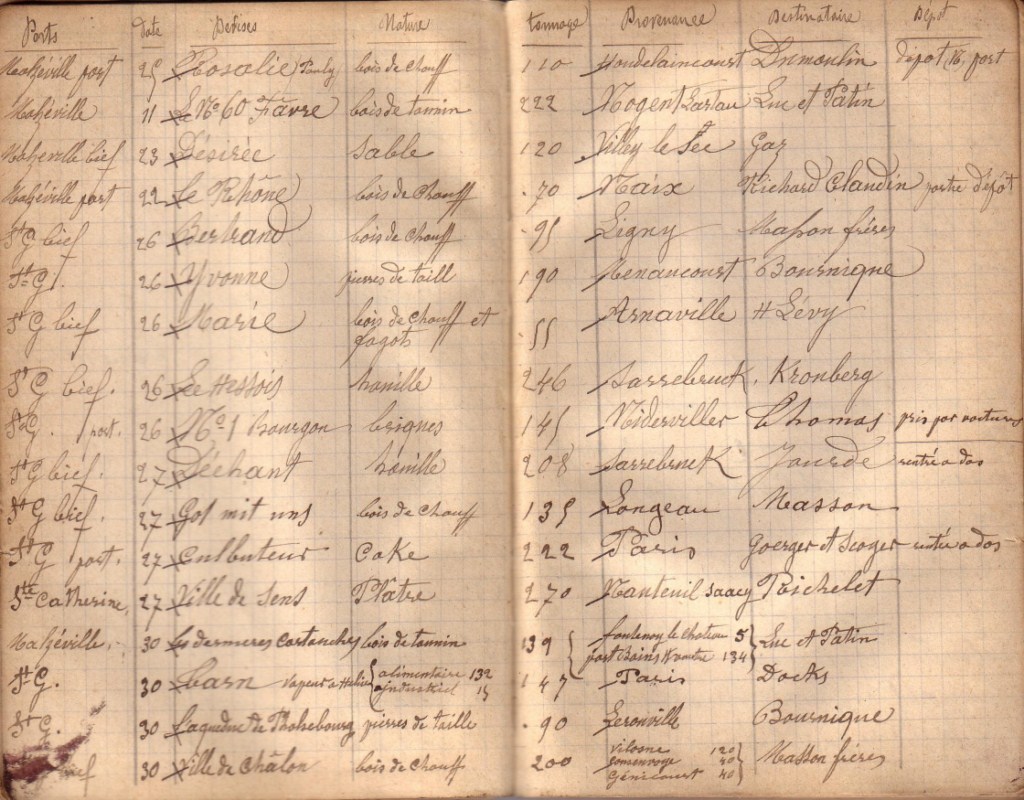 Ports Date Devises Nature tonnage Provenance Destinataire Dépôt
Malzéville port 25 Rosalie Pauly bois de chauff 110 Houdelaincourt Dumoulin dépot port
Malzéville 11 Le No 60 Favre bois de tannin 222 Nogent Luc et Patin
Malzéville bief 23 Désirée Sable 120 Villey le Sec Gaz
Malzéville port 22 Le Rhône bois de Chauff 70 Naix Richard Claudin partie dépôt
St G bief 26 Bertrand bois de Chauff 95 Ligny Masson frères
St G. 26 Yvonne pierres de taill 190 Menaucourt Bournique
St G bief 26 Marie bois de Chauff et 55 Arnaville H Lévy
fagots
St G bief. 26 Le Hessois houille 246 Sarrebruck. Kronberg
St G. port. 26 No 1 Bourgon briques 145 Niderviller Thomas pris par voitures
St G bief. 27 Déchant houille 208 Sarrebruck Jourde rentré a dos
St G bief. 27 Got mit uns bois de Chauff 135 Longeau Masson
St G port. 27 Culbuteur Coke 222 Paris Goerger et rentré a dos
Ste Catherine, 27 Ville de Sens Plâtre 270 Nanteuil Saacy Poichelet
Malzéville. 30 Les dernieres Cartouches bois de tannin 139 fontenoy le Chateau 5 Luc et Patin
port Bains 134
St G. 30 vapeur a alimentaire 132 147 Paris Docks
industriel 15
St G. 30 L'aqueduc de pierres de taille 90 Lerouville Bournique
bief 30 Ville de Châlon bois de chauff 200 Vilosne 120 Masson frères
Consenvoye 40
Génicourt 40